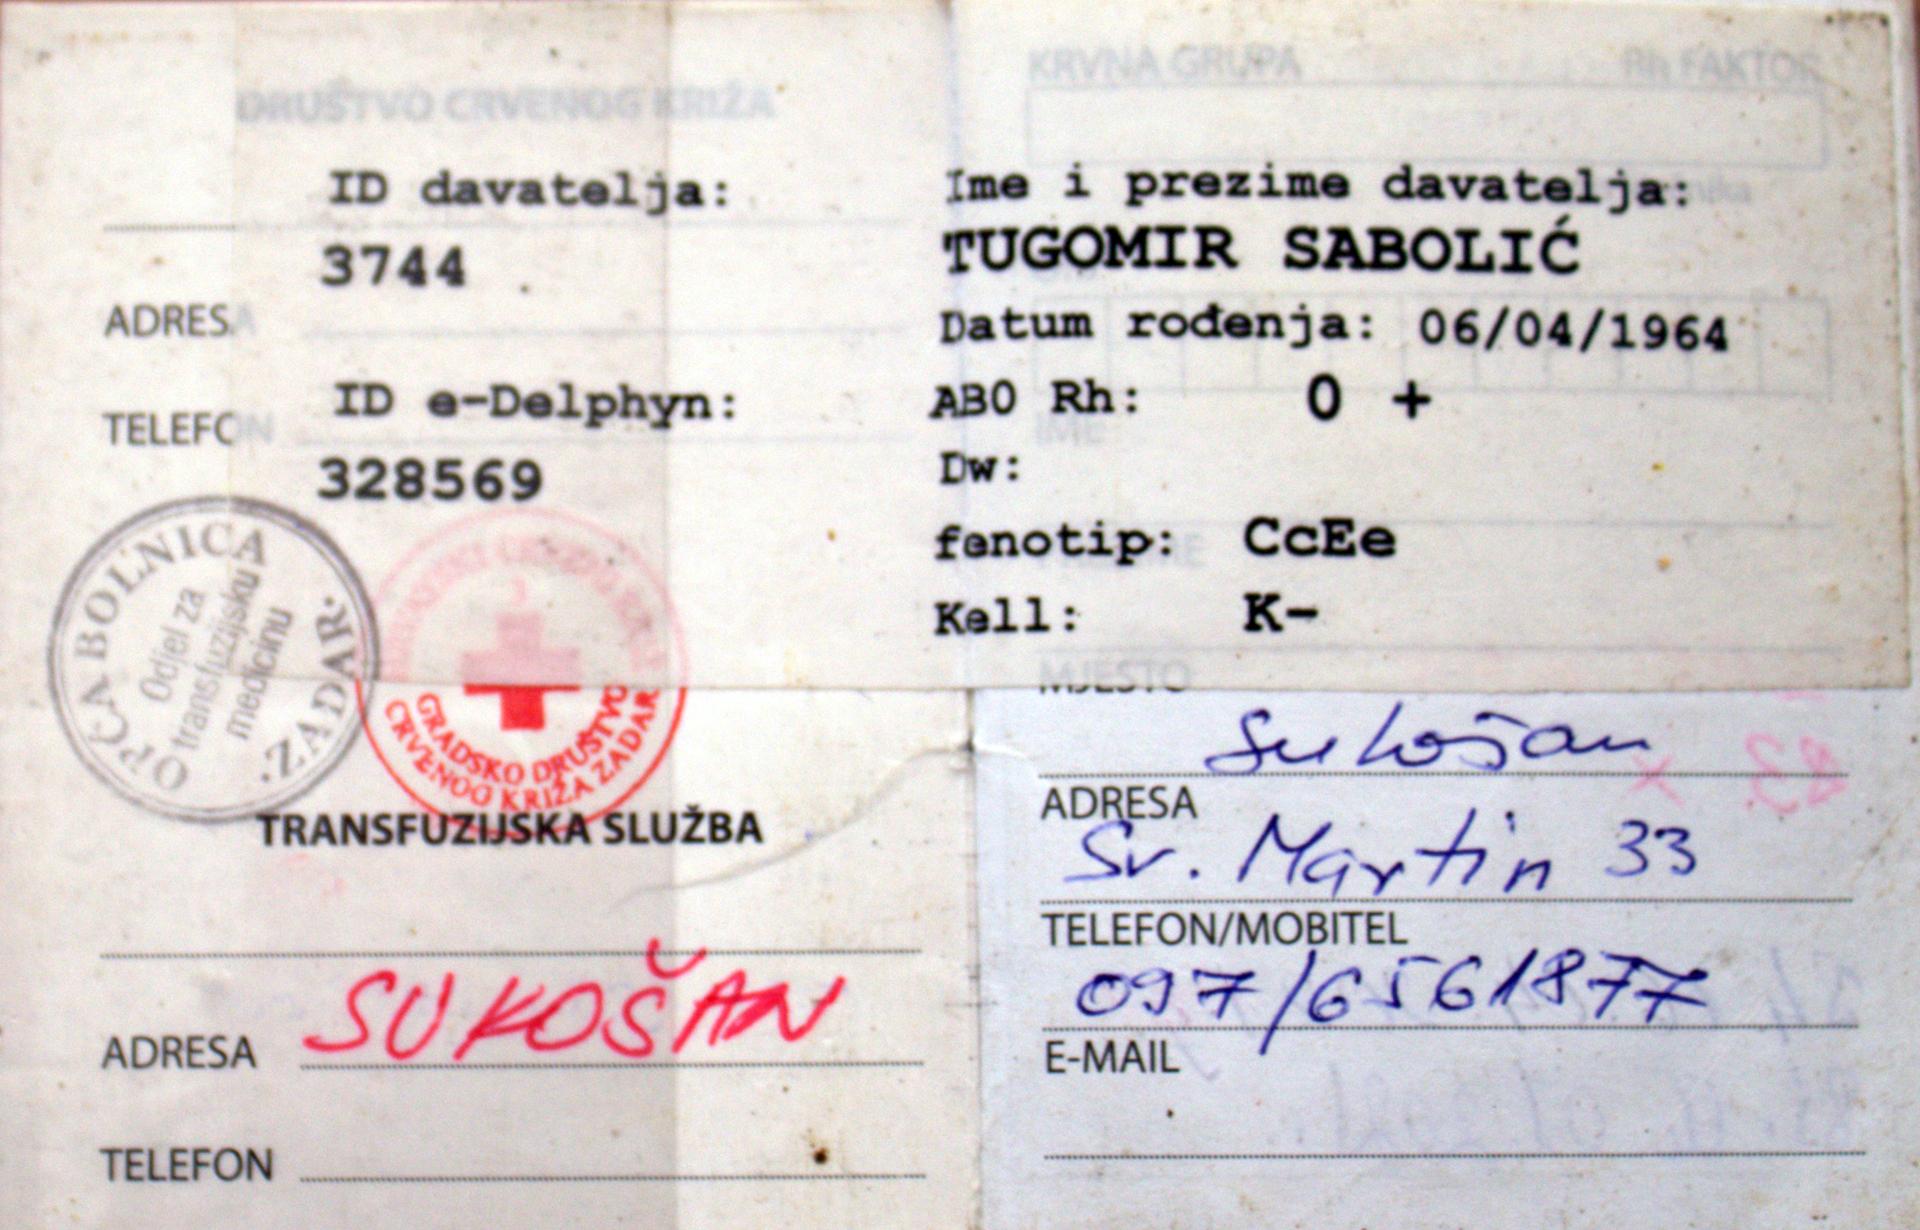 DRUŠTVO CRVENOG KRIŽA
ID davatelja:
3744
ADRESA
ID e-Delphyn:
TELEFON
328569
OPĆA BOLNICA ZADAR
Odjel za
transfuzijsku
medicinu
GRADSKO DRUŠTVO
CRVENOG KRIŽA ZADAR
TRANSFUZIJSKA SLUŽBA
ADRESA SUKOŠAN
TELEFON
KRVNA GRUPA Rh FAKTOR
Ime i prezime davatelja:
TUGOMIR SABOLIĆ
Datum rođenja: 06/04/1964
AB0 Rh: 0 +
IME
Dw:
fenotip: CcEe
Kell: K-
MJESTO
Sukošan
ADRESA
Sv. Martin 33
TELEFON/MOBITEL
097/6561877
E-MAIL